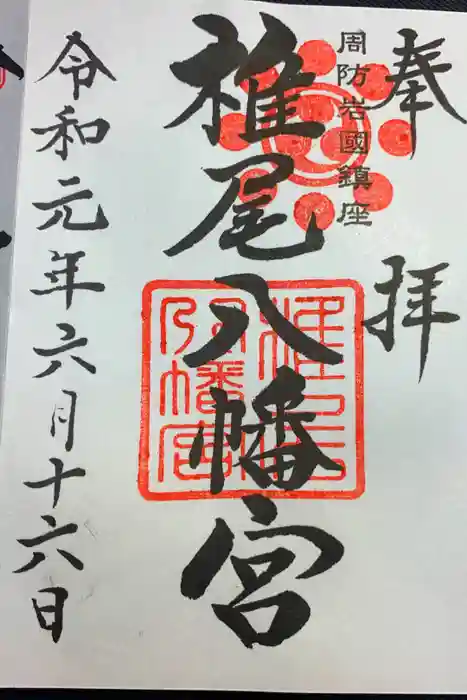 奉拝
周防岩國鎮座
椎尾八幡宮
令和元年六月十六日